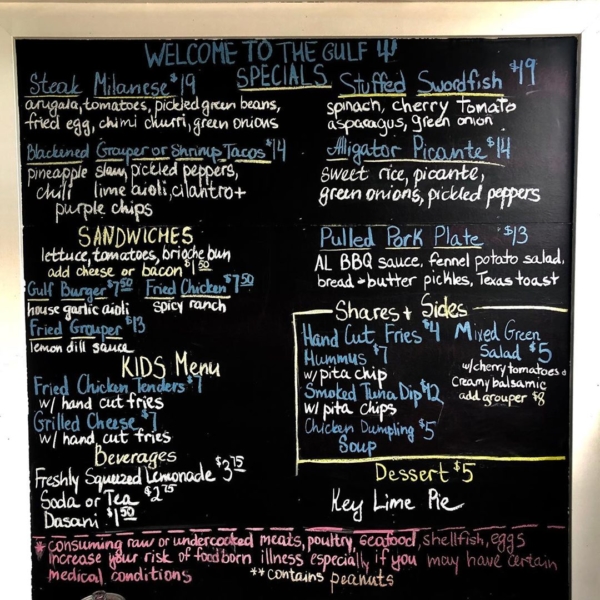 WELCOME TO THE GULF
SPECIALS
Steak Milanese $19
arugala, tomatoes, pickled green beans,
fried egg, chimi churri, green onions
Blackened Grouper or Shrimp Tacos $14
pineapple slaw, pickled peppers,
chili lime aioli, cilantro +
purple chips
Stuffed Swordfish $19
spinach, cherry tomato
asparagus, green onion
Alligator Picante $14
sweet rice, picante,
green onions, pickled peppers
SANDWICHES
lettuce, tomatoes, brioche bun
add cheese or bacon $1.50
Gulf Burger $7.50
house garlic aioli
Fried Chicken $7.50
spicy ranch
Fried Grouper $13
lemon dill sauce
KIDS Menu
Fried Chicken Tenders $7
w/ hand cut fries
Grilled Cheese $7
w/ hand cut fries
Beverages
Freshly Squeezed Lemonade $3.75
Soda or Tea $2.75
Dasani $1.50
Pulled Pork Plate $13
AL BBQ sauce, fennel potato salad,
bread + butter pickles, Texas toast
Shares + Sides
Hand Cut Fries $4
Hummus $7
w/ pita chip
Smoked Tuna Dip $12
w/ pita chips
Chicken Dumpling $5
Soup
Mixed Green
Salad $5
w/ cherry tomatoes +
Creamy balsamic
add grouper $8
Dessert $5
Key Lime Pie
* consuming raw or undercooked meats, poultry, seafood, shellfish, eggs
increase your risk of foodborn illness especially if you may have certain
medical conditions
** contains peanuts